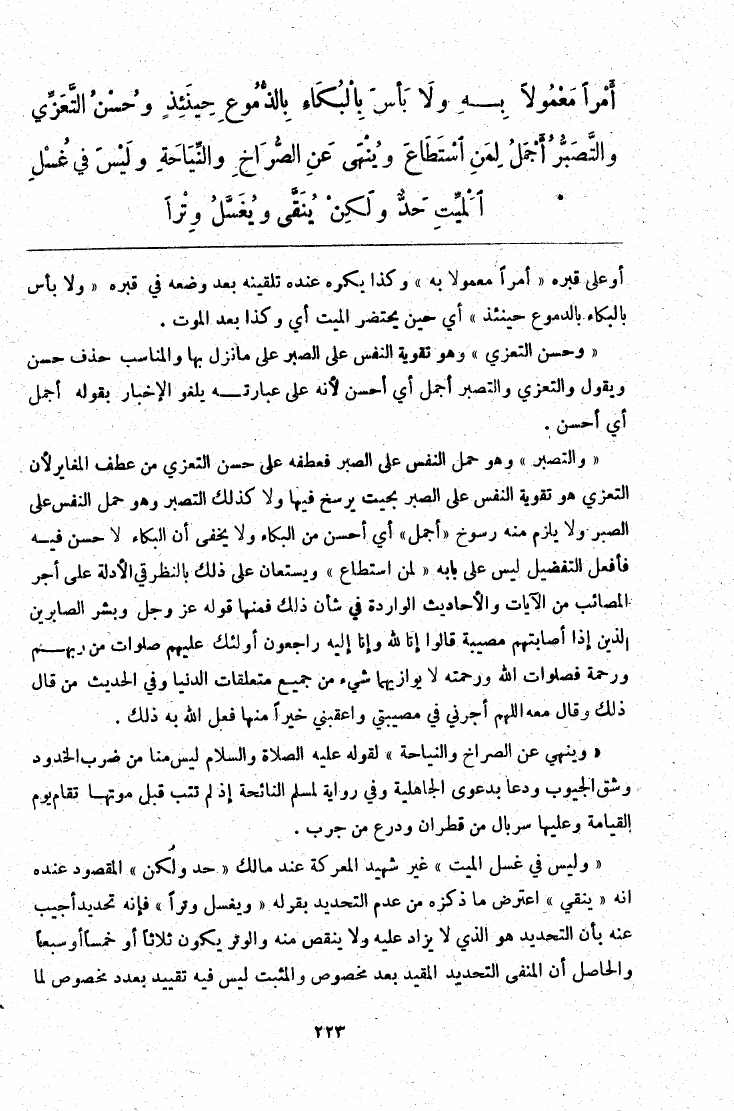 أَمْراً مَعْمُولاً بِـــهِ وَلَا بَأْسَ بِالْبُكَاءِ بِالدُّمُوعِ حِينَئِذٍ وَحُسْنُ التَّعَزِّي
وَالتَّصَبُّرُ أَجْمَلُ لِمَنِ اسْتَطَاعَ وَيُنْهَى عَنِ الصُّرَاخِ وَالنِّيَاحَةِ وَلَيْسَ فِي غُسْلِ
الْمَيِّتِ حَدٌّ وَلَكِنْ يُنَقَّى وَيُغَسَّلُ وِتْراً
أو على قبره « أمراً معمولا به » وكذا يكره عنده تلقينه بعد وضعه في قبره « ولا بأس
بالبكاء بالدموع حينئذ » أي حين يحتضر الميت أي وكذا بعد الموت .
« وحسن التعزي » وهو تقوية النفس على الصبر على مانزل بها والمناسب حذف حسن
ويقول والتعزي والتصبر أجمل أي أحسن لأنه على عبارتـــه يلغو الإخبار بقوله أجمل
أي أحسن .
« والتصبر » وهو حمل النفس على الصبر فعطفه على حسن التعزي من عطف المغاير لأن
التعزي هو تقوية النفس على الصبر بحيث يرسخ فيها ولا كذلك التصبر وهو حمل النفس على
الصبر ولا يلزم منه رسوخ « أجمل » أي أحسن من البكاء ولا يخفى أن البكاء لا حسن فيـــه
فأفعل التفضيل ليس على بابه « لمن استطاع » ويستعان على ذلك بالنظر في الأدلة على أجر
المصائب من الآيات والأحاديث الواردة في شأن ذلك فمنها قوله عز وجل وبشر الصابرين
الذين إذا أصابتهم مصيبة قالوا إنا لله وإنا إليه راجعون أولئك عليهم صلوات من ربهـــم
ورحمة فصلوات الله ورحمته لا يوازيها شيء من جميع متعلقات الدنيا وفي الحديث من قال
ذلك وقال معه اللهم أجرني في مصيبتي واعقبني خيراً منها فعل الله به ذلك .
« وينهي عن الصراخ والنياحة » لقوله عليه الصلاة والسلام ليس منا من ضرب الخدود
وشق الجيوب ودعا بدعوى الجاهلية وفي رواية لمسلم النائحة إذ لم تتب قبل موتهـــا تقام يوم
القيامة وعليها سربال من قطران ودرع من جرب .
« وليس في غسل الميت » غير شهيد المعركة عند مالك « حد ولُكن » المقصود عنده
انه « ينقي » اعترض ما ذكره من عدم التحديد بقوله « ويغسل وتراً » فإنه تحديد أجيب
عنه بأن التحديد هو الذي لا يزاد عليه ولا ينقص منه والوتر يكون ثلاثاً أو خمساً أو سبعاً
والحاصل أن المنفى التحديد المقيد بعد مخصوص والمثبت ليس فيه تقييد بعدد مخصوص لما
٢٢٣